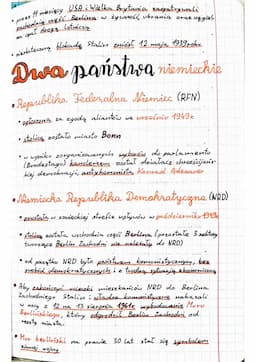 • przez 11 miesięcy USA i Wielka Brytania zaopatrywali
zachodnią część Berlina w żywność, ubrania oraz węgiel
drogą lotniczą
• nieskuteczną blokadę Stalin zniósł 12 maja 1949 roku
Dwa państwa niemieckie
• Republika Federalna Niemiec (RFN)
• ogłoszona za zgodą aliantów we wrześniu 1949r.
• stolicą zostało miasto Bonn
• w wyniku zorganizowanych wyborów do parlamentu
(Bundestagu) kanclerzem został działacz chrześcijańs-
kiej demokracji, antykomunista Konrad Adenauer
• Niemiecka Republika Demokratyczna (NRD)
• powstała w radzieckiej strefie wpływów w październiku 1949r.
• stolicą została wschodnia część Berlina (pozostałe 3 sektory
tworzące Berlin Zachodni nie należały do NRD)
• od początku NRD była państwem komunistycznym, bez
swobód demokratycznych i z trudną sytuacją ekonomiczną
• Aby zakończyć ucieczki mieszkańców NRD do Berlina
Zachodniego Stalin i władze komunistyczne nakazali
w nocy z 12 na 13 sierpnia 1961r. wybudowanie Muru
Berlińskiego, który odgrodził Berlin Zachodni od
reszty miasta.
• Mur berliński na prawie 30 lat stał się symbolem
zimnej wojny